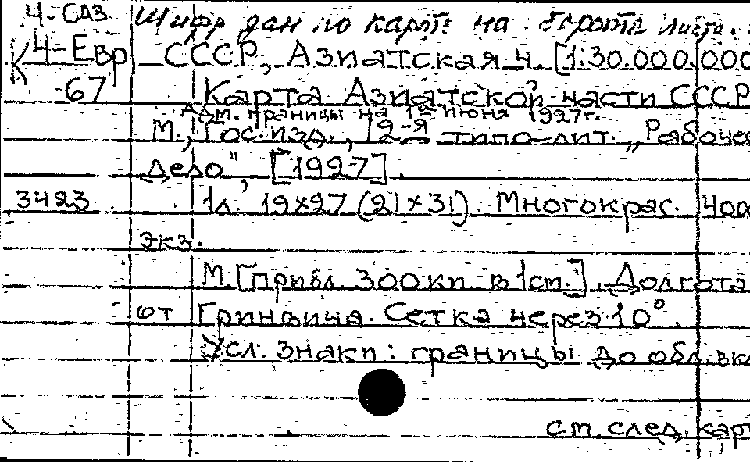 4-САЗ Шифр дан по карте на обороте листа.
К 4-Евр СССР, Азиатская ч. [1:30.000.000
-67 Карта Азиатской части СССР
Адм. границы на 1е июня 1927г.
М., Гос. изд., 12-я типо-лит. „Рабочее
дело", [1927].
3423 1л. 19х27 (21х31). Многокрас. 400
экз.
М. [прибл. 300км в 1см.]. Долгота
от Гринвича. Сетка через 10°.
Усл. знаки: границы до обл. вк
см. след. карт